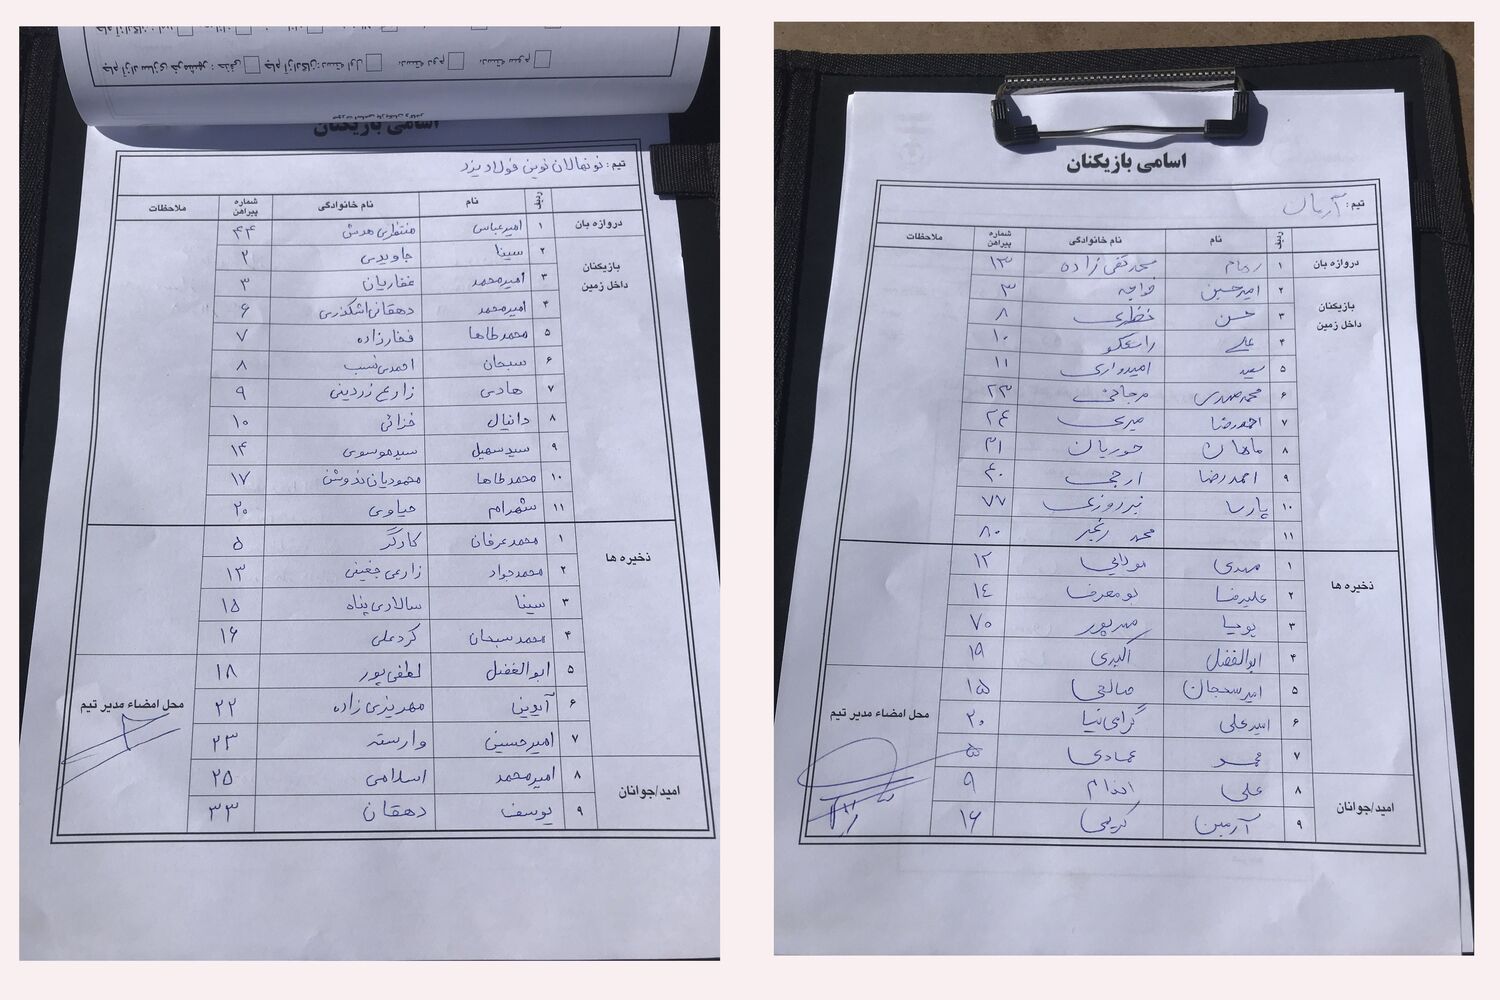 دسته سوم
دسته دوم
جام آزادگان:دسته اول
جام آزاد سازی خرمشهر : حذفی
اسامی بازیکنان
تیم : نونهالان نوین فولاد یزد
ردیف نام نام خانوادگی شماره پیراهن ملاحظات
دروازه بان ۱ امیرعباس منتظری ۴۴
بازیکنان داخل زمین
۲ سینا جاویدی ۲
۳ امیرمحمد غفاریان ۳
۴ امیرمحمد دهقانی اشکذری ۶
۵ محمدطاها فخارزاده ۷
۶ سبحان احمدی نسب ۸
۷ هادی زارع زردینی ۹
۸ دانیال خزائی ۱۰
۹ سیدسهیل سیدموسوی ۱۴
۱۰ محمدطاها محمودیان ندوشن ۱۷
۱۱ شهرام حیاوی ۲۰
ذخیره ها
۱ محمدعرفان کارگر ۵
۲ محمدجواد زارعی ۱۳
۳ سینا سالاری پناه ۱۵
۴ محمدسبحان کردعلی ۱۶
۵ ابوالفضل لطفی پور ۱۸
۶ آیوین مهدیزی زاده ۲۲
۷ امیرحسین وارسته ۲۳
امید/جوانان
۸ امیرمحمد اسلامی ۲۵
۹ یوسف دهقان ۳۳
محل امضاء مدیر تیم
اسامی بازیکنان
تیم : آرمان
ردیف نام نام خانوادگی شماره پیراهن ملاحظات
دروازه بان ۱ رهام ۱۳
بازیکنان داخل زمین
۲ امیرحسین خواجه ۳
۳ حسن نظری ۸
۴ علی راستگو ۱۰
۵ سعید امیدواری ۱۱
۶ محمدمهدی مرجانی ۲۳
۷ احمدرضا میری ۲۴
۸ ماهان حوریان ۳۱
۹ احمدرضا ارجی ۴۰
۱۰ پارسا نبروزی ۷۷
۱۱ محمد رنجبر ۸۰
ذخیره ها
۱ مهدی ۱۲
۲ علیرضا ۱۴
۳ پوییا مهرپور ۷۰
۴ ابوالفضل اکبری ۱۹
۵ امیرسبحان صالحی ۱۵
۶ امیرعلی گرامی نیا ۲۰
۷ محمد عمادی ۵
امید/جوانان
۸ علی اندام ۹
۹ آرمین کریمی ۱۶
محل امضاء مدیر تیم